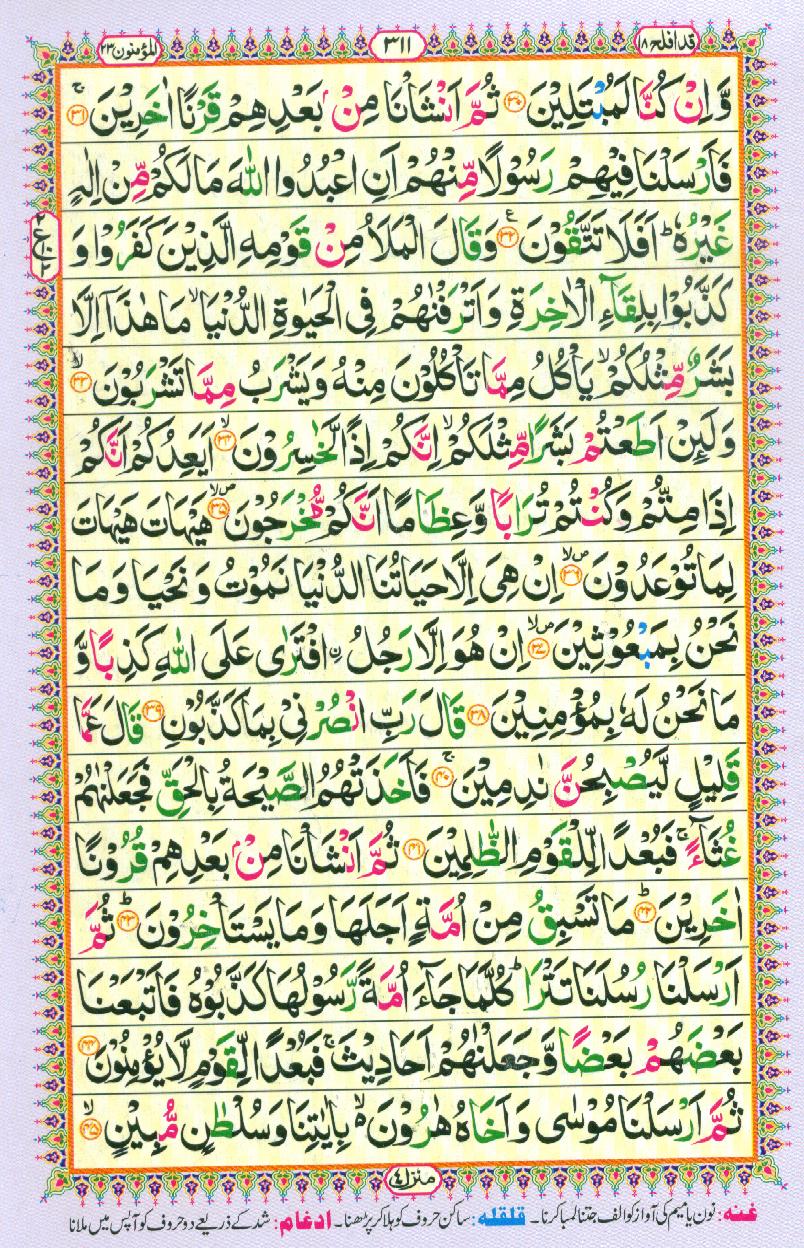 قد افلح ۱۸
۳۱۱
المؤمنون ۲۳
وَّاِنْ كُنَّا لَمُبْتَلِيْنَ ﴿۳۰﴾ ثُمَّ اَنْشَاْنَا مِنْۢ بَعْدِهِمْ قَرْنًا اٰخَرِيْنَ ۚ﴿۳۱﴾
فَاَرْسَلْنَا فِيْهِمْ رَسُوْلًا مِّنْهُمْ اَنِ اعْبُدُوا اللّٰهَ مَا لَكُمْ مِّنْ اِلٰهٍ
غَيْرُهٗ ؕ اَفَلَا تَتَّقُوْنَ ﴿۳۲﴾ ع وَقَالَ الْمَلَاُ مِنْ قَوْمِهِ الَّذِيْنَ كَفَرُوْا وَ
كَذَّبُوْا بِلِقَآءِ الْاٰخِرَةِ وَاَتْرَفْنٰهُمْ فِى الْحَيٰوةِ الدُّنْيَا ۙ مَا هٰذَاۤ اِلَّا
بَشَرٌ مِّثْلُكُمْ ۙ يَاْكُلُ مِمَّا تَاْكُلُوْنَ مِنْهُ وَيَشْرَبُ مِمَّا تَشْرَبُوْنَ ۙ﴿۳۳﴾
وَلَئِنْ اَطَعْتُمْ بَشَرًا مِّثْلَكُمْ ۙ اِنَّكُمْ اِذًا لَّخٰسِرُوْنَ ۙ﴿۳۴﴾ اَيَعِدُكُمْ اَنَّكُمْ
اِذَا مِتُّمْ وَكُنْتُمْ تُرَابًا وَّعِظَامًا اَنَّكُمْ مُّخْرَجُوْنَ ۙ﴿۳۵﴾ هَيْهَاتَ هَيْهَاتَ
لِمَا تُوْعَدُوْنَ ۙ﴿۳۶﴾ اِنْ هِىَ اِلَّا حَيَاتُنَا الدُّنْيَا نَمُوْتُ وَنَحْيَا وَمَا
نَحْنُ بِمَبْعُوْثِيْنَ ۙ﴿۳۷﴾ اِنْ هُوَ اِلَّا رَجُلُ ۨافْتَرٰى عَلَى اللّٰهِ كَذِبًا وَّ
مَا نَحْنُ لَهٗ بِمُؤْمِنِيْنَ ﴿۳۸﴾ قَالَ رَبِّ انْصُرْنِىْ بِمَا كَذَّبُوْنِ ﴿۳۹﴾ قَالَ عَمَّا
قَلِيْلٍ لَّيُصْبِحُنَّ نٰدِمِيْنَ ۚ﴿۴۰﴾ فَاَخَذَتْهُمُ الصَّيْحَةُ بِالْحَقِّ فَجَعَلْنٰهُمْ
غُثَآءً ۚ فَبُعْدًا لِّلْقَوْمِ الظّٰلِمِيْنَ ﴿۴۱﴾ ثُمَّ اَنْشَاْنَا مِنْۢ بَعْدِهِمْ قُرُوْنًا
اٰخَرِيْنَ ؕ﴿۴۲﴾ مَا تَسْبِقُ مِنْ اُمَّةٍ اَجَلَهَا وَمَا يَسْتَاْخِرُوْنَ ؕ﴿۴۳﴾ ثُمَّ
اَرْسَلْنَا رُسُلَنَا تَتْرَا ؕ كُلَّمَا جَآءَ اُمَّةً رَّسُوْلُهَا كَذَّبُوْهُ فَاَتْبَعْنَا
بَعْضَهُمْ بَعْضًا وَّجَعَلْنٰهُمْ اَحَادِيْثَ ۚ فَبُعْدًا لِّقَوْمٍ لَّا يُؤْمِنُوْنَ ﴿۴۴﴾
ثُمَّ اَرْسَلْنَا مُوْسٰى وَاَخَاهُ هٰرُوْنَ ۙ۬ بِاٰيٰتِنَا وَسُلْطٰنٍ مُّبِيْنٍ ۙ﴿۴۵﴾
منزل ۴
غنه: نون یا میم کی آواز کو الف جتنا لمبا کرنا۔ قلقله: ساکن حروف کو ہلا کر پڑھنا۔ ادغام: شد کے ذریعے دو حروف کو آپس میں ملانا